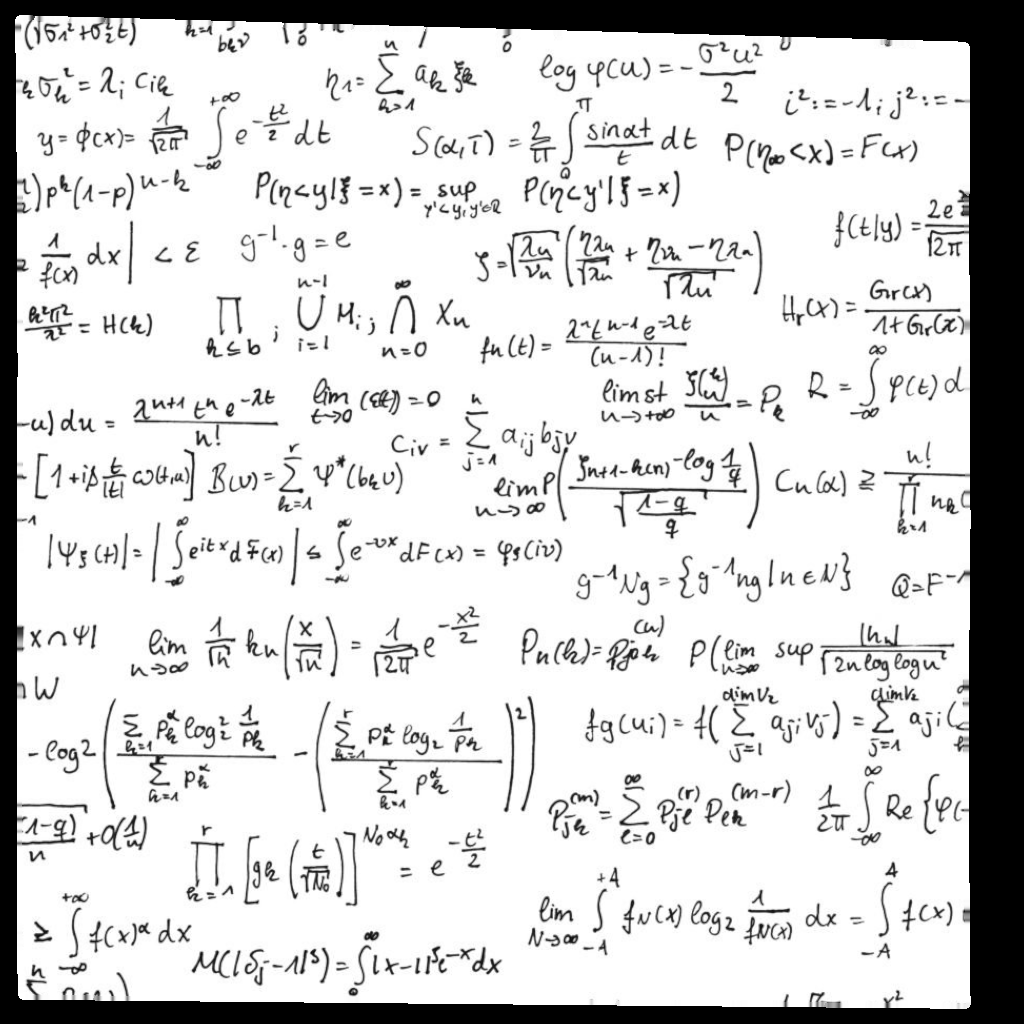 (√σ1²+σ2²t)
σk² = λi Cik
η1 = Σ(k>1 to n) ak ξk
log φ(u) = - σ²u²/2
i² := -1; j² := -
y = ϕ(x) = 1/√2π ∫(-∞ to +∞) e^(-t²/2) dt
S(α,T) = 2/π ∫(0 to π) sinαt/t dt
P(η∞<x) = F(x)
p^k(1-p)^(n-k)
P(η<y|ξ=x) = sup(y'<y, y'∈R) P(η<y'|ξ=x)
f(t|y) = 2e/√2π
1/f(x) dx| < ε
g⁻¹·g = e
ζ = √(λn/νn) (ηλn/√λn + (ηνn - ηλn)/√λn)
k²π²/λ² = H(k)
∏(k≤b) ; ∪(i=1 to n-1) Mi ; ∩(n=0 to ∞) Xn
fn(t) = λ^n t^(n-1) e^(-λt)/(n-1)!
Hr(x) = Gr(x)/(1+Gr(x))
-u) du = λ^(n+1) t^n e^(-λt)/n!
lim(t→0) (ε(t)) = 0
Civ = Σ(j=1 to n) aij bjv
lim st(n→+∞) ξn^(k)/n = Pk
R = ∫(-∞ to ∞) φ(t) d
-[1+iβ t/|t| ω(t,α)]
B(v) = Σ(k=1 to r) Ψ*(bkv)
lim(n→∞) P((ζn+1-k(n) - log 1/q)/√((1-q)/q))
Cn(α) ≥ n!/∏(k=1 to r) nk
-1
|Ψξ(t)| = |∫(-∞ to ∞) e^(itx) dF(x)| ≤ ∫(-∞ to ∞) e^(-vx) dF(x) = φξ(iv)
g⁻¹Ng = {g⁻¹ng|n∈N}
Q = F⁻¹
x∩Ψ|
lim(n→∞) 1/√n kn(x/√n) = 1/√2π e^(-x²/2)
Pn(k) = Pjok^(n)
P(lim(n→∞) sup |hn|/√(2n log log n²)
∩W
-log2 (Σ(k=1) pk^α log2² 1/pk / Σ(k=1 to r) pk^α - (Σ(k=1 to r) pk^α log2 1/pk / Σ(k=1 to r) pk^α)²)
fg(ui) = f(Σ(j=1 to dimV2) aji vj) = Σ(j=1 to dimV2) aji (
Pjk^(m) = Σ(l=0 to ∞) Pjl^(r) Plk^(m-r)
1/2π ∫(-∞ to ∞) Re {φ(-
√(1-q)/n + O(1/n)
∏(k=1 to r) [gk (t/√N0)]^(N0αk) = e^(-t²/2)
≥ ∫(-∞ to +∞) f(x)^α dx
lim(N→∞) ∫(-A to +A) fN(x) log2 1/fN(x) dx = ∫(-A to A) f(x)
M(|δj-1|^s) = ∫(0 to ∞) |x-1|^s e^(-x) dx
x²